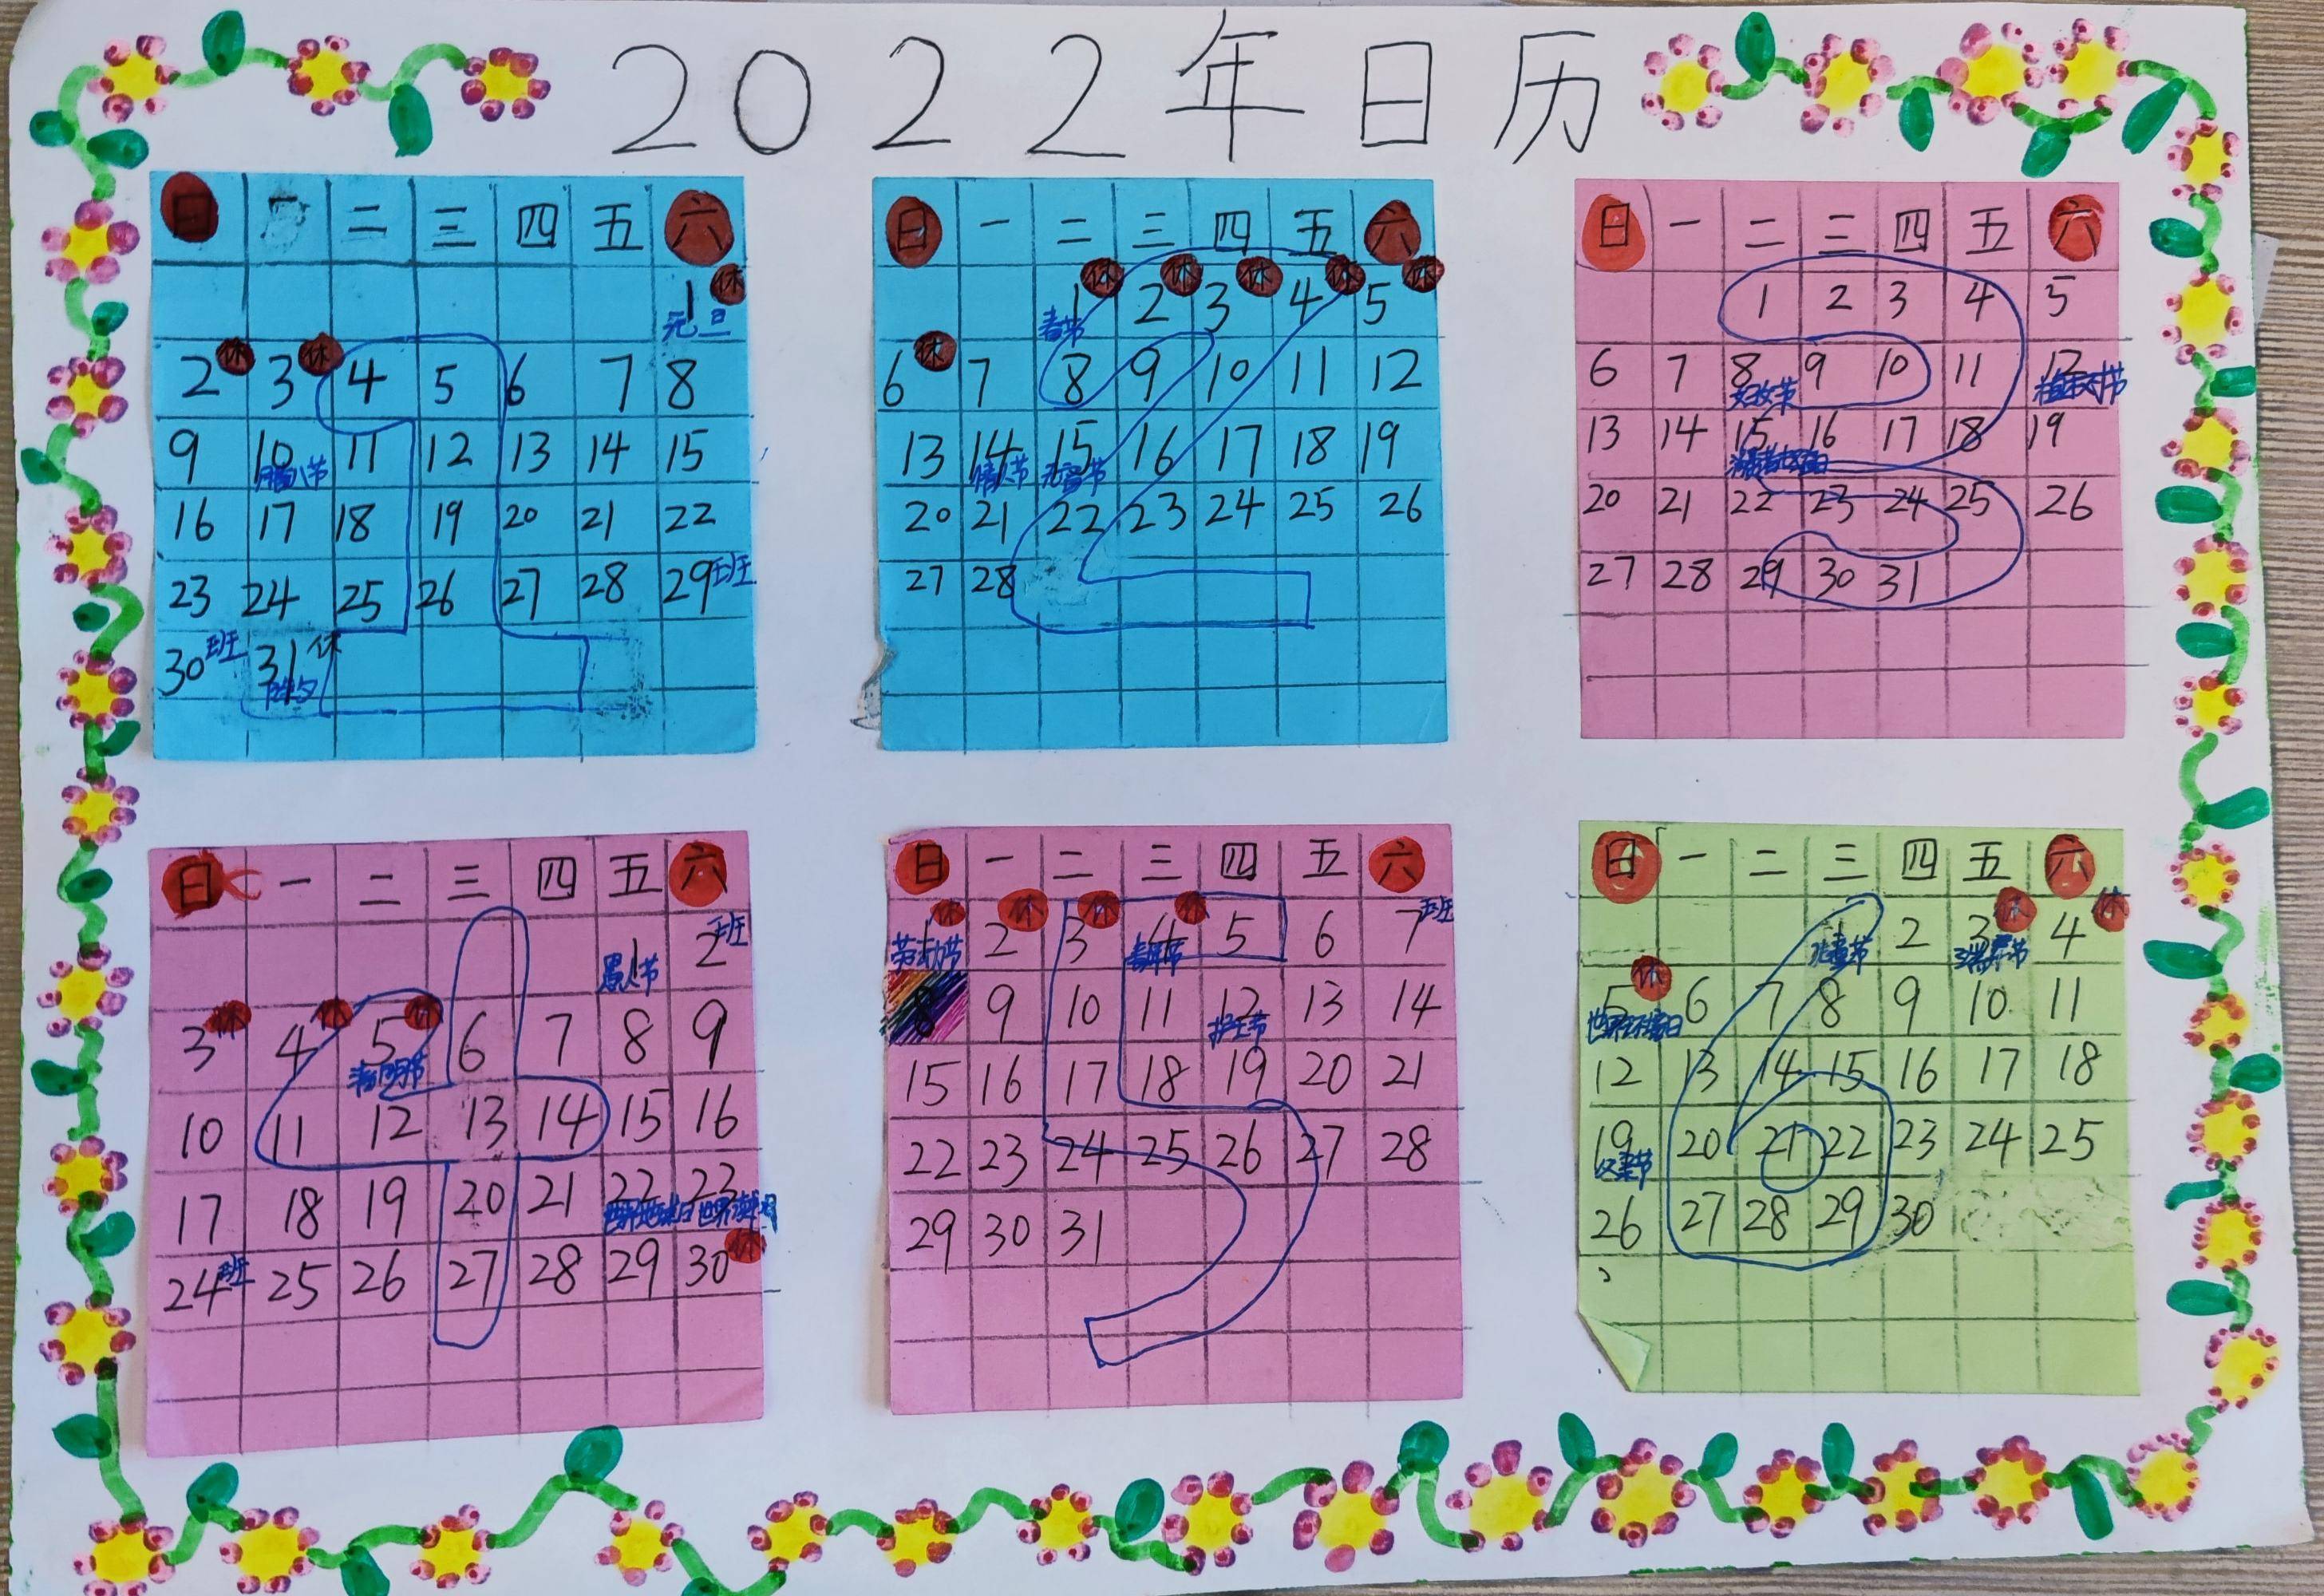 2022年日历
日 一 二 三 四 五 六
1 休
元旦
2 休 3 休 4 5 6 7 8
9 10 11 12 13 14 15
腊八节
16 17 18 19 20 21 22
23 24 25 26 27 28 29 班
30 班 31 休
除夕
日 一 二 三 四 五 六
1 休 2 休 3 休 4 休 5 休
春节
6 休 7 8 9 10 11 12
13 14 15 16 17 18 19
情人节 元宵节
20 21 22 23 24 25 26
27 28
日 一 二 三 四 五 六
1 2 3 4 5
6 7 8 9 10 11 12
妇女节 植树节
13 14 15 16 17 18 19
20 21 22 23 24 25 26
27 28 29 30 31
日 一 二 三 四 五 六
1 2 班
愚人节
3 休 4 休 5 休 6 7 8 9
清明节
10 11 12 13 14 15 16
17 18 19 20 21 22 23
世界地球日 世界读书日
24 班 25 26 27 28 29 30 休
日 一 二 三 四 五 六
1 休 2 休 3 休 4 休 5 6 7 班
劳动节 青年节
8 9 10 11 12 13 14
护士节
15 16 17 18 19 20 21
22 23 24 25 26 27 28
29 30 31
日 一 二 三 四 五 六
1 2 3 休 4 休
儿童节 端午节
5 休 6 7 8 9 10 11
世界环境日
12 13 14 15 16 17 18
19 20 21 22 23 24 25
父亲节
26 27 28 29 30